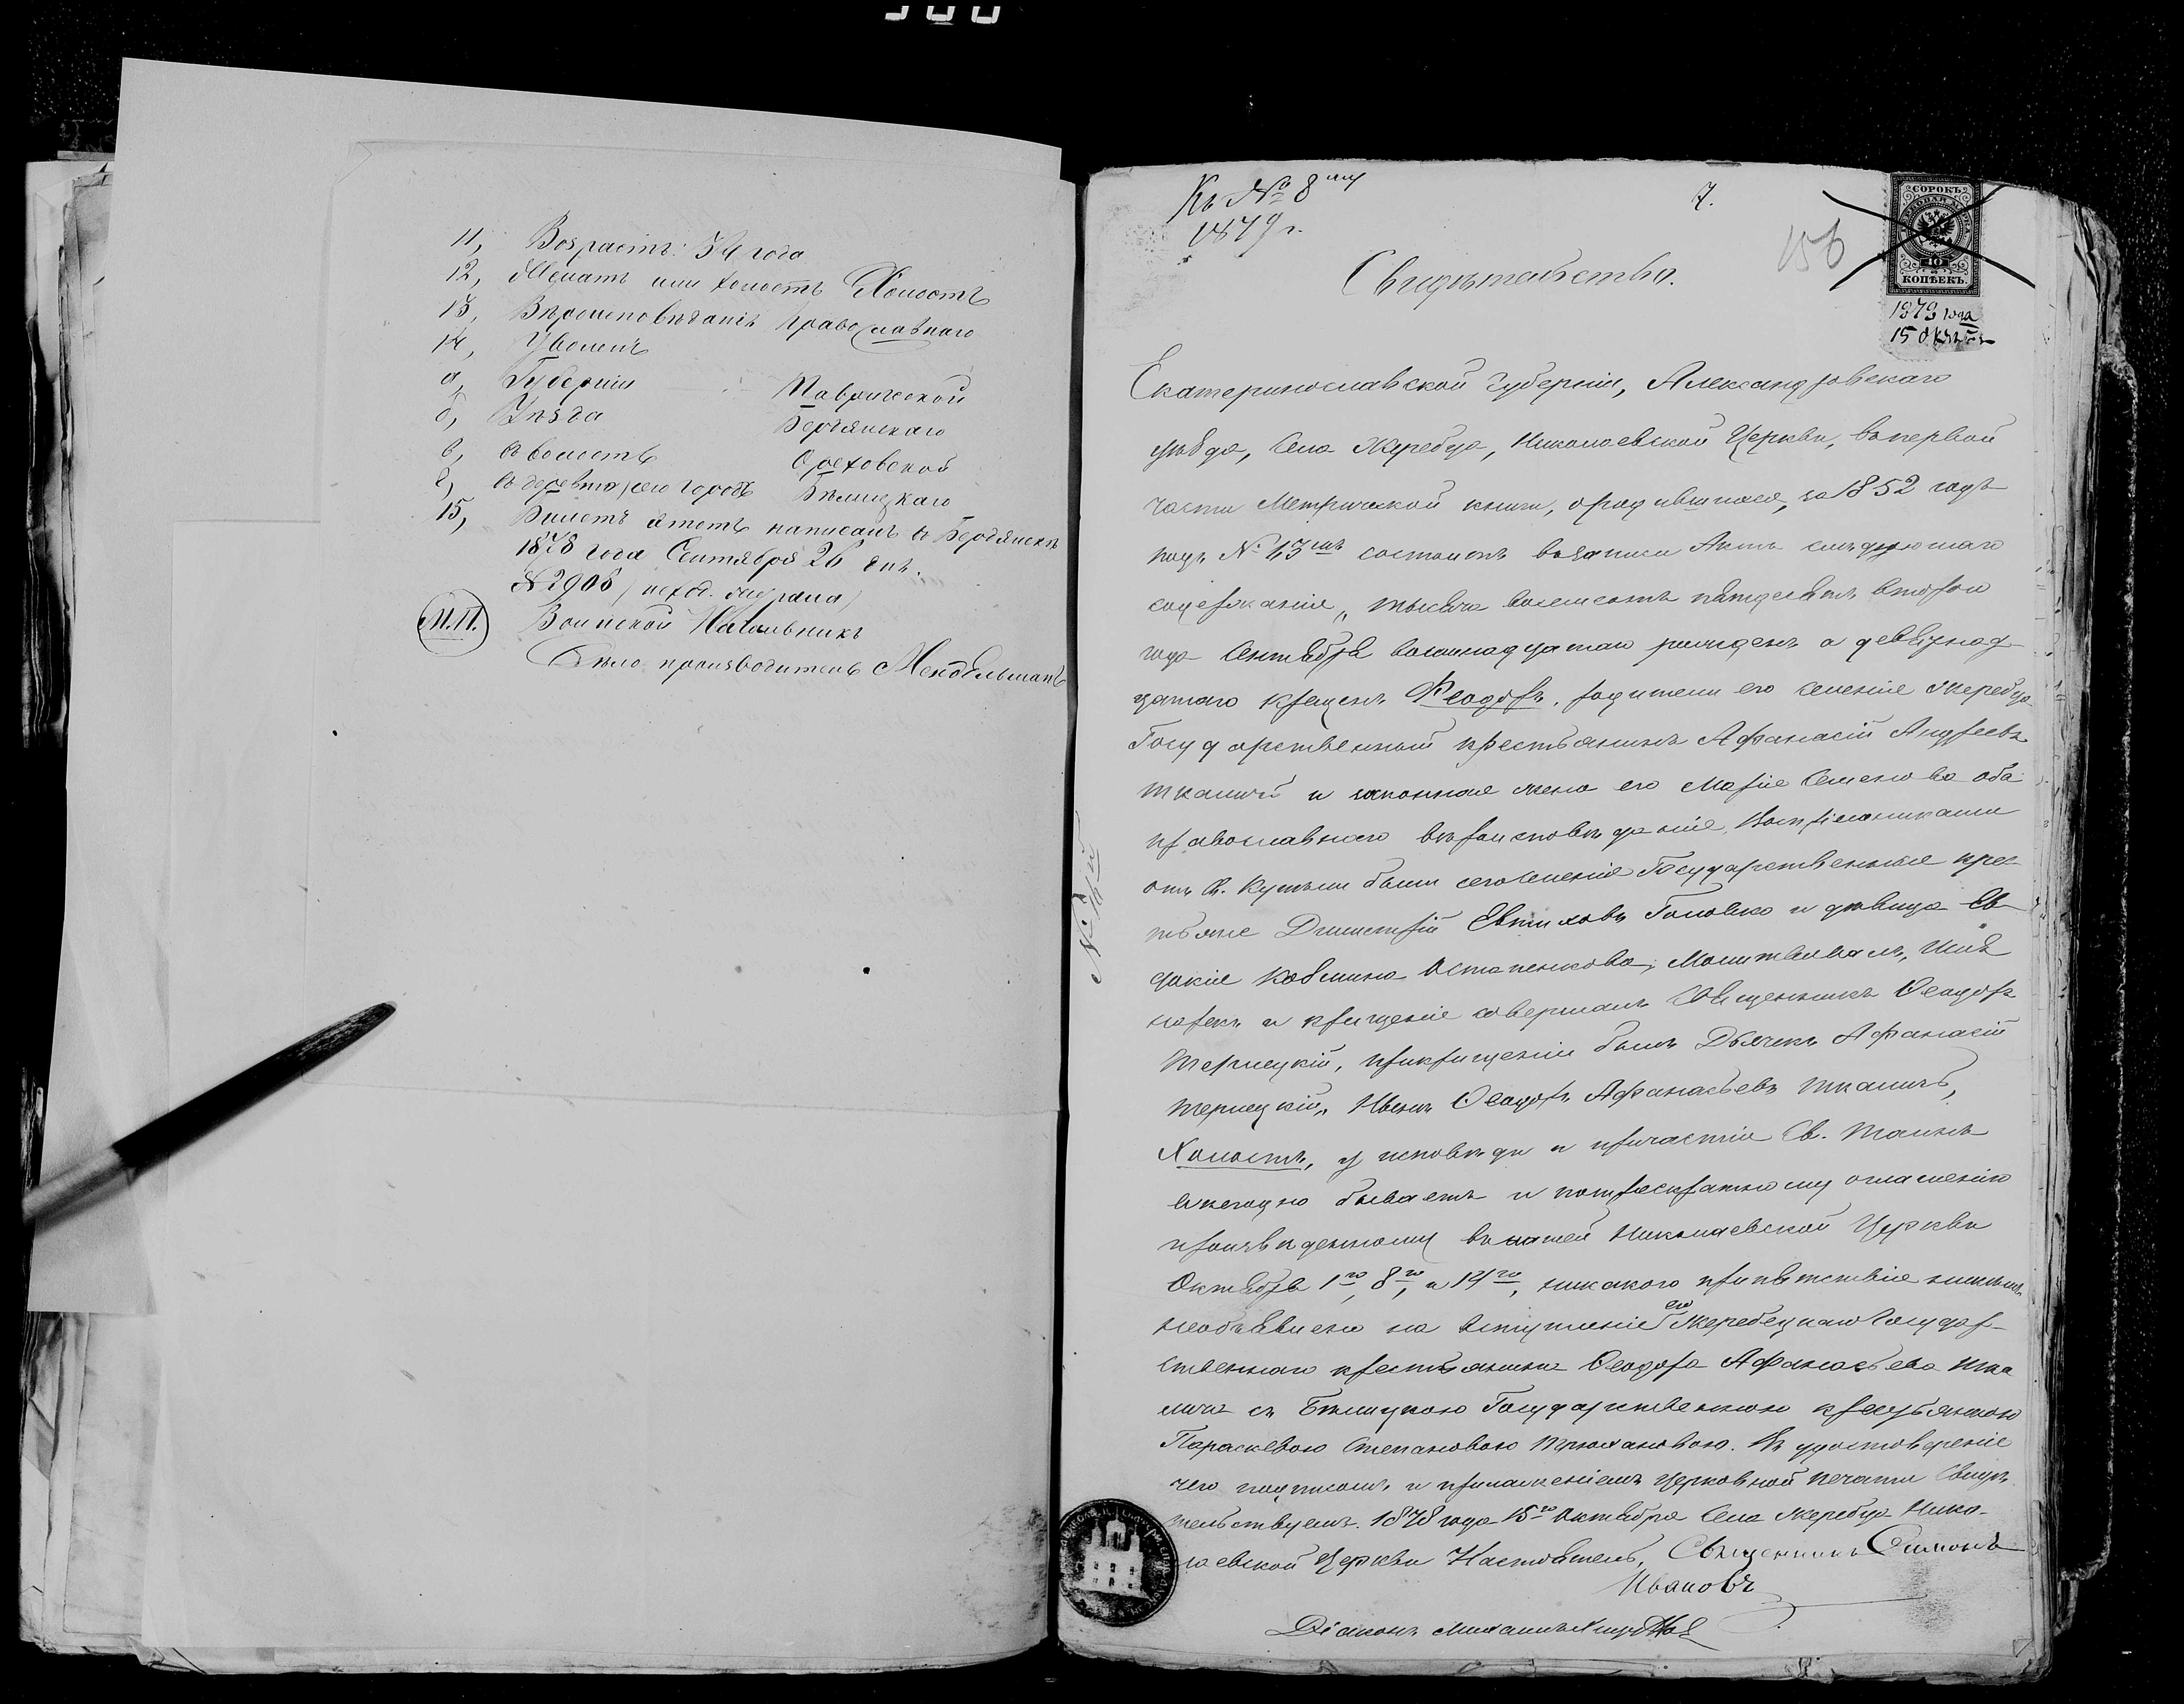 11, Возрастъ: 34 года
12, Женатъ или холостъ Холостъ
13, Вѣроисповѣданія православнаго
14, Уволенъ
а, Губерніи Таврической
б, Уѣзда Бердянскаго
в, въ волость Ореховской
г, въ деревню, село городъ Бѣлицкаго
15, Билетъ этотъ написанъ въ Бердянскѣ
1878 года Сентября 26 дня.
№ 2908
М.П. Воинскій Начальникъ
Дѣлопроизводитель Мендельманъ
Къ № 8му
1879 г.
7.
156
СОРОКЪ
40
КОПѢЕКЪ.
1879 года
15 Окт
Свидѣтельство.
Екатеринославской губерніи, Александровскаго
уѣзда, села Жеребца, Николаевской Церкви, въ первой
части Метрической книги, о родившихся, за 1852 годъ
подъ № 43мъ состоитъ въ записи Актъ слѣдующаго
содержанія „тысяча восемьсотъ пятдесятъ второй
года Сентября восемнадцатаго рожденъ а девятнад-
цатаго крещенъ Ѳеодоръ, родители его селенія Жеребца
Государственный крестьянинъ Афанасій Андреевъ
Ткаличъ и законная жена его Марія Семенова оба
православнаго вѣроисповѣданія, Воспріемниками
отъ Св. Купели были сего селенія Государственные кре-
стьяне Димитрій Евтиховъ Головко и дѣвица Ев-
докія Остапенкова, Молитвовалъ, имя
нарекъ и крещеніе совершалъ Священникъ Ѳеодоръ
Терлецкій, при крещеніи былъ Дьячекъ Афанасій
Терлецкій„ Нынѣ Ѳеодоръ Афанасьевъ Ткаличъ,
Холостъ, у исповѣди и причастія Св. Таинъ
ежегодно бываетъ и по троекратному оглашенію
произведенному въ нашей Николаевской Церкви
Октября 1го, 8го, и 14го, никакого препятствія никѣмъ
необъявлено на вступленіе его Жеребецкаго Государ-
ственнаго крестьянина Ѳеодора Афанасьева Тка
лича съ Бѣлицкою Государственною крестьянкою
Параскевою Степановою Трюхановою. Въ удостовѣреніе
чего подписомъ и приложеніемъ церковной печати Свидѣ
тельствуемъ. 1878 года 15го Октября Села Жеребца Нико-
лаевской Церкви Настоятель, Священникъ Симонъ
Ивановъ
Діаконъ Михаилъ